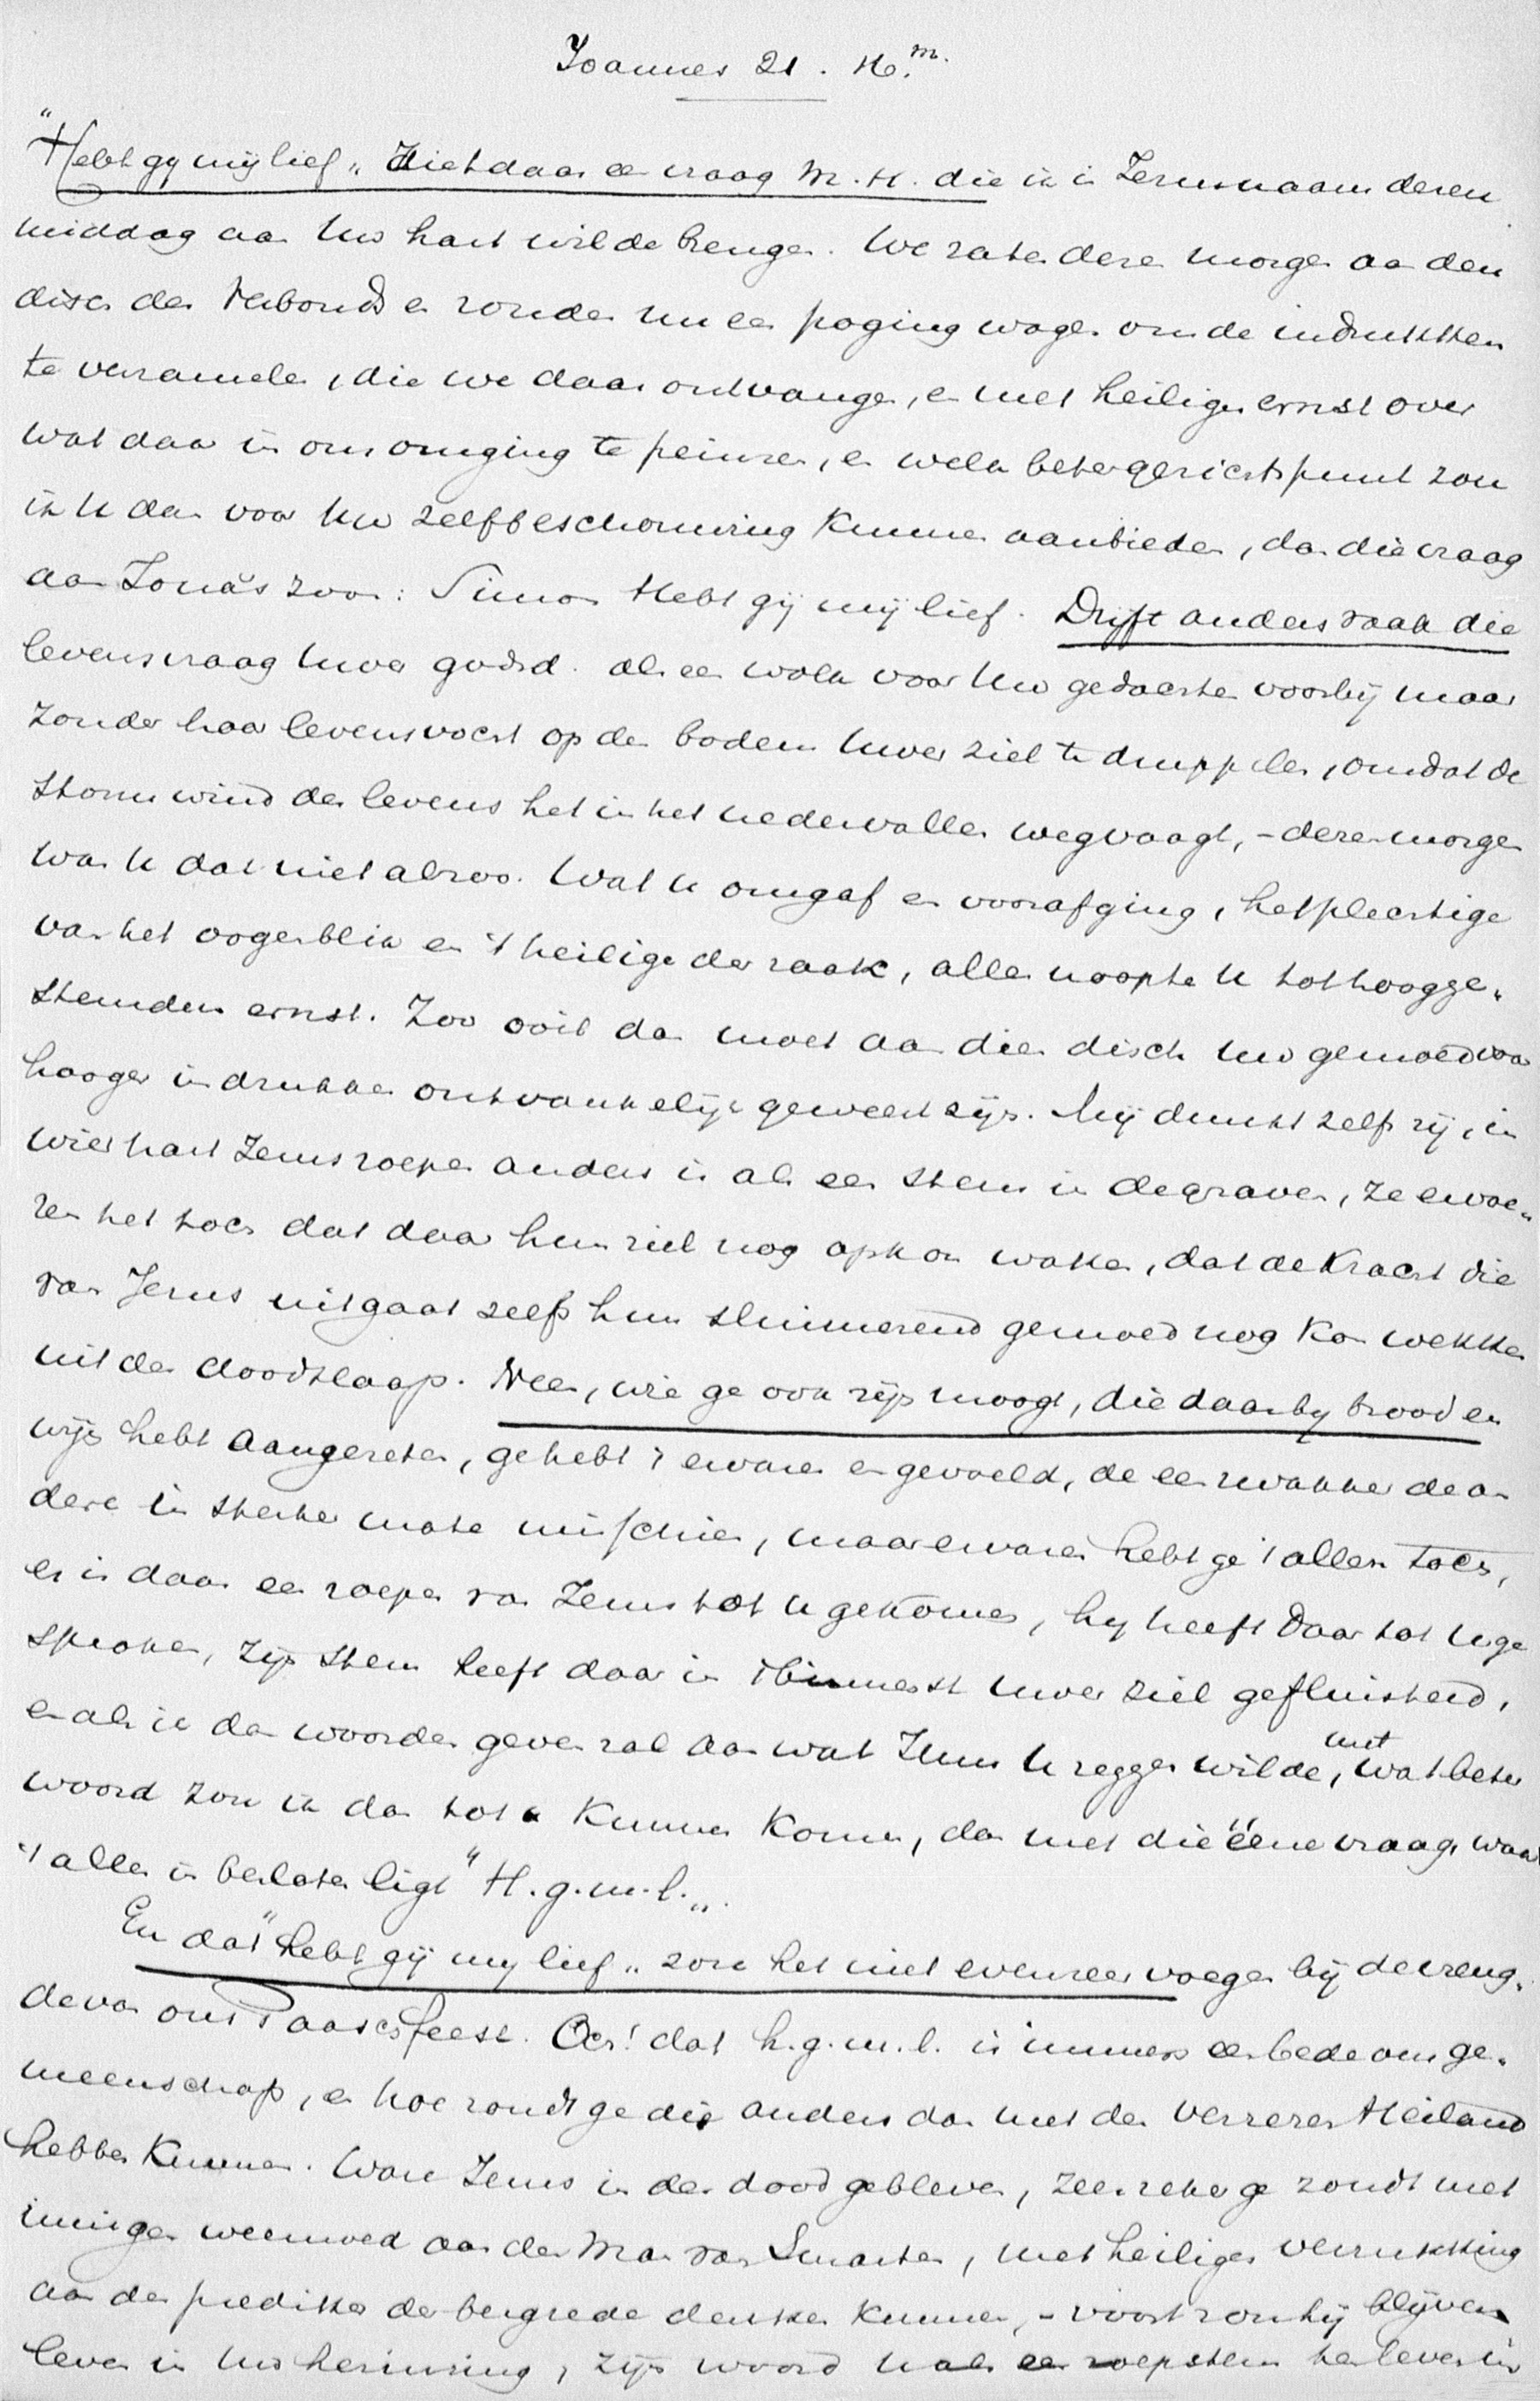 Joannes 21. 16.m.
"Hebt gy mij lief„ Ziet daar een vraag M. H. die ik in Jezus naam dezen
middag aan Uw hart wilde brengen. We zaten dezen morgen aan den
disch des Verbonds en zouden nu een poging wagen om de indrukken
te verzamelen, die we daar ontvangen, en met heiligen ernst over
wat daar in ons omging te peinzen, en welk beter gezichtspunt zou
ik U dan voor Uw zelfbeschouwing kunnen aanbieden, dan die vraag
aan Jona's zoon: Simon Hebt gij mij lief. Drijft anders vaak die
levensvraag Uwer godsd. als een wolk voor Uw gedachten voorbij maar
zonder haar levensvocht op den bodem Uwer ziel te druppelen, omdat de
stormwind des levens het in het nedervallen wegvaagt, – dezen morgen
was U dat niet alzoo. Wat U omgaf en voorafging, het plechtige
van het oogenblik en 't heilige der zaak, alles noopte U tot hoogge„
stemden ernst. Zoo ooit dan moet aan dien disch Uw gemoed voor
hooger indrukken ontvankelijk geweest zijn. Mij dunkt zelfs zij, in
wier hart Jezus roepen anders is als een stem in de graven, ze ervoe„
ren het toch dat daar hun ziel nog opkon waken, dat de kracht die
van Jezus uitgaat zelfs hun sluimerend gemoed nog kon wekken
uit den doodslaap. Neen, wie ge ook zijn moogt, die daar by brood en
wijn hebt aangezeten, ge hebt 't ervaren en gevoeld, de een zwakker de an
dere in sterker mate misschien, maar ervaren hebt ge 't allen toch,
er is daar een roepen van Jezus tot U gekomen, hy heeft daar tot U ge
sproken, zijn stem heeft daar in 't binnenst Uwer ziel gefluisterd,
en als ik dan woorden geven zal aan wat Jezus U zeggen wilde, met wat beter
woord zou ik dan tot U kunnen komen, dan met die ééne vraag, waar
't alles in besloten ligt "H. g. m. l.„.
En dat "hebt gij my lief„ zou het niet evenzeer voegen bij de vreug„
de van ons Paaschfeest. Och! dat h. g. m. l. is immers een bede om ge„
meenschap, en hoe zoudt ge die anders dan met den verrezen Heiland
hebben kunnen. Ware Jezus in den dood gebleven, zeer zeker ge zoudt met
innigen weemoed aan den Man van Smarten, met heilige verrukking
aan den prediker der bergrede denken kunnen, – voort zou hij blijven
leven in Uw herinnering, zijn woord U als een roepstem herleven in